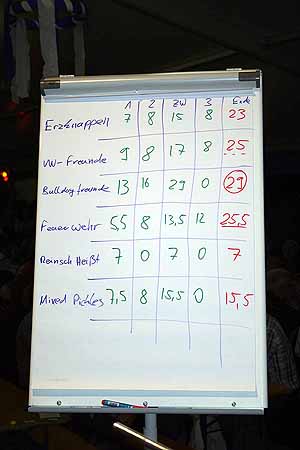 1 2 ZW 3 Ende
Erzknappen 7 8 15 8 23
VW-Freunde 9 8 17 8 25
Bulldogfreunde 13 16 29 0 29
Feuerwehr 5,5 8 13,5 12 25,5
7 0 7 0 7
Mixed Pickles 7,5 8 15,5 0 15,5